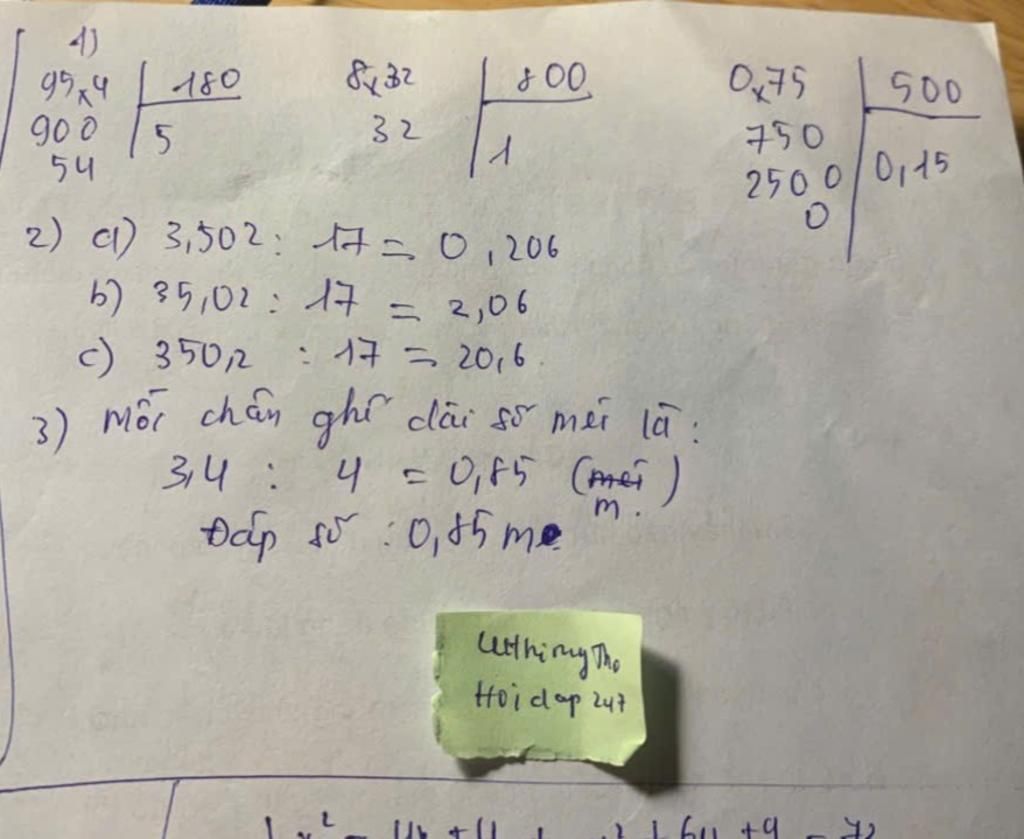 1)
95,4 180
900 5
54
8,32 800
32 1
0,75 500
750 0,15
2500
0
2) a) 3,502 : 17 = 0,206
b) 35,02 : 17 = 2,06
c) 350,2 : 17 = 20,6
3) Mỗi chân ghế dài số mét là:
3,4 : 4 = 0,85 (m)
Đáp số : 0,85 m
Hoidap247